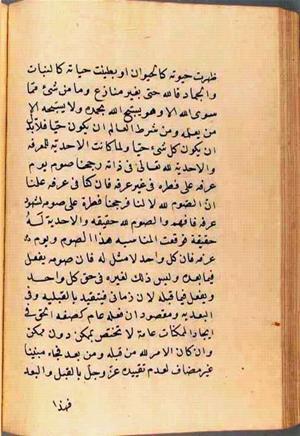 ظهرت حيوته كالحيوان او بطنت حياته كالنبات
والجماد فالله حي بغير منازع وما من شئ مما
سوى الله الا وهو يسبح الله بحمده ولا يسبحه الا
من يعلمه ومن شرط العالم ان يكون حيا فلا بد
ان يكون كل شئ حيا ولما كانت الاحدية للمعرفة
والاحدية لله تعالى في ذاته رجحنا صوم يوم
عرفه على فطره في غير عرفه فان كنا في عرفه علمنا
ان الصوم لله لا لنا فرجحنا فطره على صومه لشهود
عرفه فافهم والصوم لله حقيقه والاحدية له
حقيقة فوقعت المناسبه هذا الصوم ويوم
عرفه فان كل واحد لا مثل له فان صومه يفعل
فيما بعده وليس ذلك لغيره في حق كل واحد
ويفعل فيما قبله لان زماني فتقيد بالقبليه وفى
البعديه ومقصود ان فعله عام كصفه الحق فى
ايجاد الممكنات عامة لا تختص بممكن دون ممكن
وان كان الامر لله من قبله ومن بعد فجاء مبنيا
غير مضاف لعدم تقييده عز وجل بالقبل والبعد
فهذا